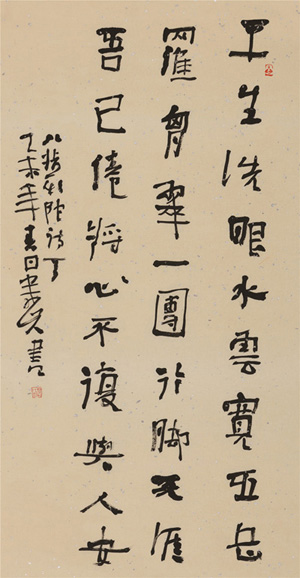 平生洗眼水雲寬五岳
羅胸翠一團行脚天涯
吾已倦將心不復與人安
八指頭陀詩
乙未年春日書